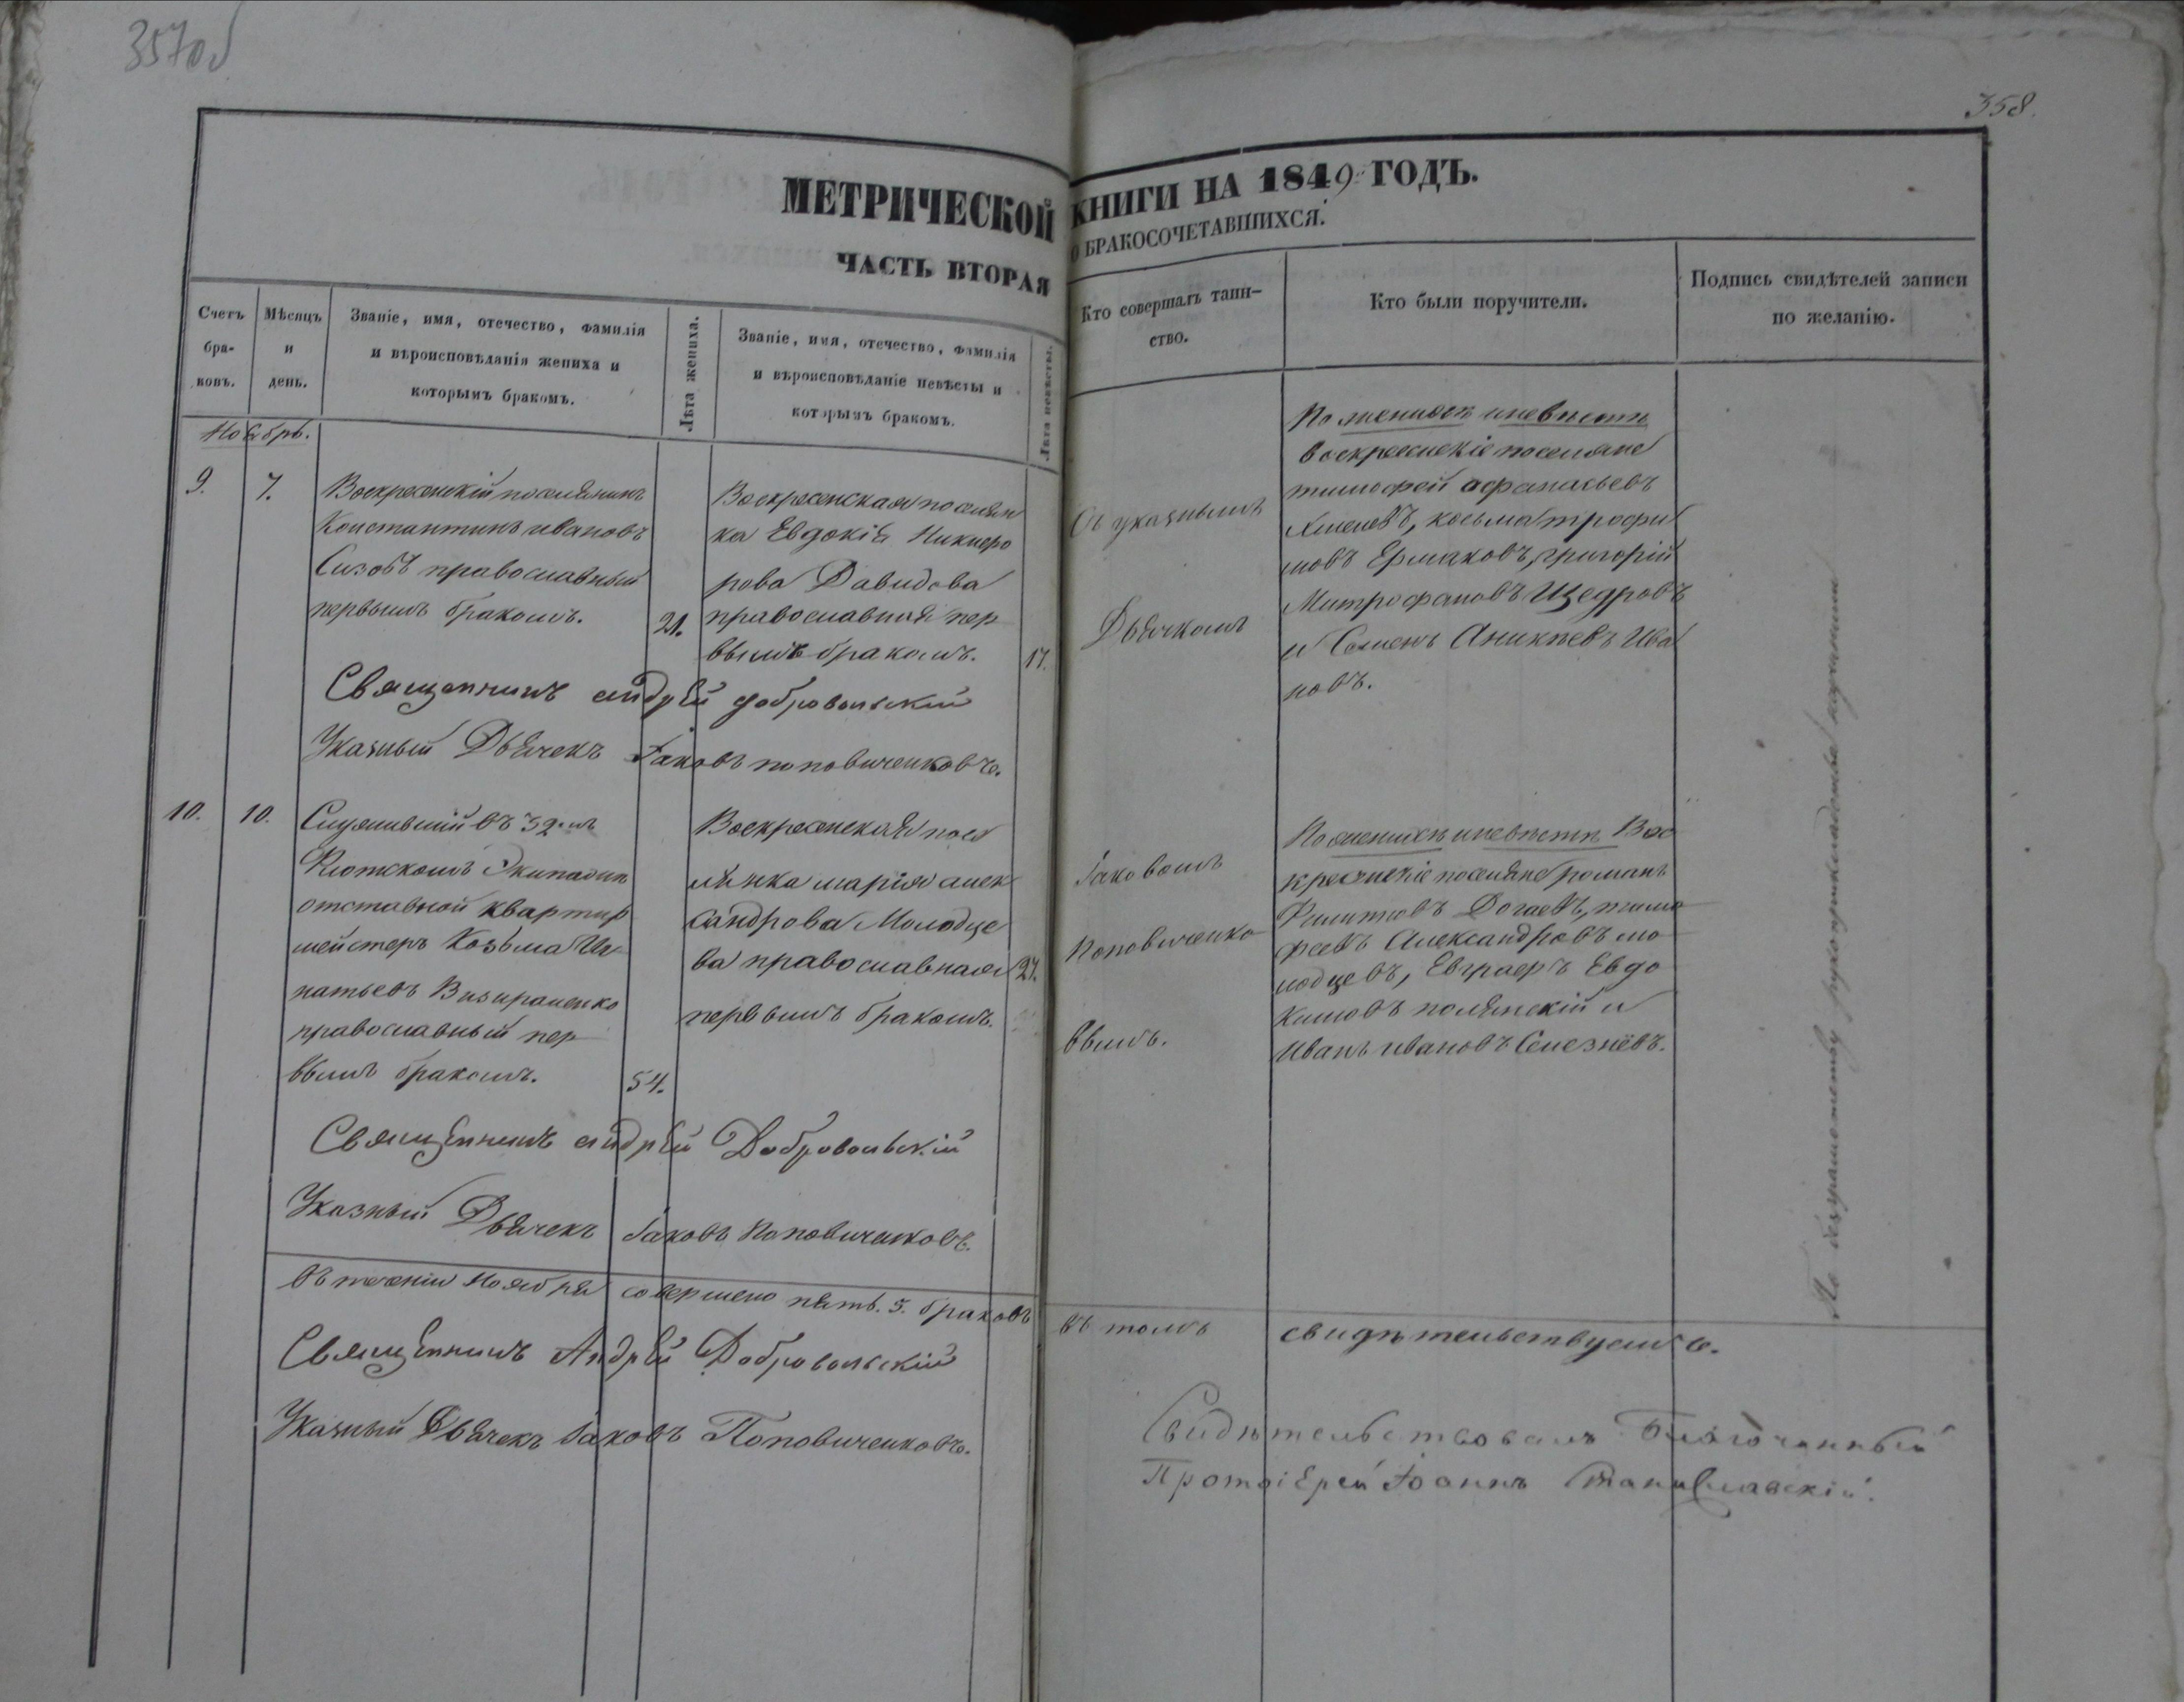 357об
358.
МЕТРИЧЕСКОЙ КНИГИ НА 1849 ГОДЪ.
ЧАСТЬ ВТОРАЯ О БРАКОСОЧЕТАВШИХСЯ.
Счетъ бра-ковъ.
Мѣсяцъ и день.
Званіе, имя, отечество, фамилія
и вѣроисповѣданія жениха и
которымъ бракомъ.
Лѣта жениха.
Званіе, имя, отечество, фамилія
и вѣроисповѣданіе невѣсты и
которымъ бракомъ.
Лѣта невѣсты.
Кто совершалъ таин-
ство.
Кто были поручители.
Подпись свидѣтелей записи
по желанію.
Ноябрь.
9.
7.
Воскресенскій поселянинъ
Константинъ ивановъ
Сизовъ православный
первымъ бракомъ.
21.
Воскресенская поселян
ка Евдокія Никиеро
рова Давидова
православная пер
вымъ бракомъ.
17.
Съ указнымъ
Дьячкомъ
По женихѣ и невѣстѣ
воскресенскіе поселяне
тимофей афанасьевъ
косьма трофи
мовъ Ермаковъ, григорій
Митрофановъ Щедровъ
и Семенъ Аникѣевъ Ива
новъ.
Священникъ андрей добровольскій
Указный Дьячекъ Іаковъ поповиченковъ.
10.
10.
Служившій въ 32мъ
Флотскомъ Экипажѣ
отставной квартир
мейстеръ Козьма Иг
натьевъ
православный пер
вымъ бракомъ.
54.
Воскресенская посе
лянка марія алек
сандрова Молодце
ва православная
первымъ бракомъ.
27.
Іаковомъ
Поповиченко
вымъ.
По женихѣ и невѣстѣ Вос
кресенскіе поселяне романъ
Филиповъ Догаевъ, тимо
феевъ Александровъ мо
лодцевъ, Евграфъ Евдо
кимовъ полянскій и
Иванъ ивановъ Селезнёвъ.
По безграмотству рукоприкладства неучинили
Священникъ андрей Добровольскій
Указный Дьячекъ Іаковъ Поповиченковъ.
Въ теченіи Ноября совершено пять. 5. браковъ въ томъ свидѣтельствуемъ.
Священникъ Андрей Добровольскій
Указный Дьячекъ Іаковъ Поповиченковъ.
Свидѣтельствовалъ Благочинный
Протоіерей Іоаннъ Станиславскій.